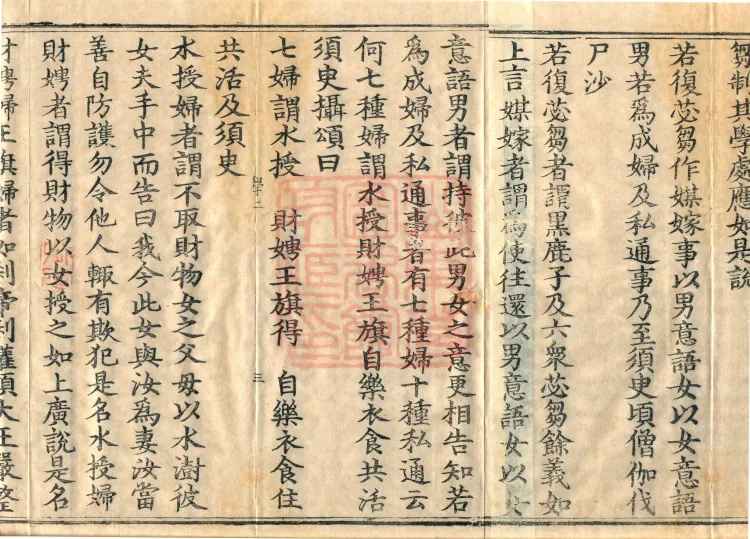 芻制其學處應如是説
若復苾芻作媒嫁事以男意語女以女意語
男若爲成婦及私通事乃至須臾頃僧伽伐
尸沙
若復苾芻者謂黑鹿子及六衆苾芻餘義如
上言媒嫁者謂爲使往還以男意語女以女
意語男者謂持彼此男女之意更相告知若
爲成婦及私通事者有七種婦十種私通云
何七種婦謂水授財娉王旗自樂衣食共活
須臾攝頌曰
七婦謂水授　財娉王旗得　自樂衣食住
三
共活及須臾
水授婦者謂不取財物女之父母以水澍彼
女夫手中而告曰我今此女與汝爲妻汝當
善自防護勿令他人輙有欺犯是名水授婦
財娉者謂得財物以女授之如上廣説是名
財娉婦王旗婦者如刹帝利灌頂大王嚴整